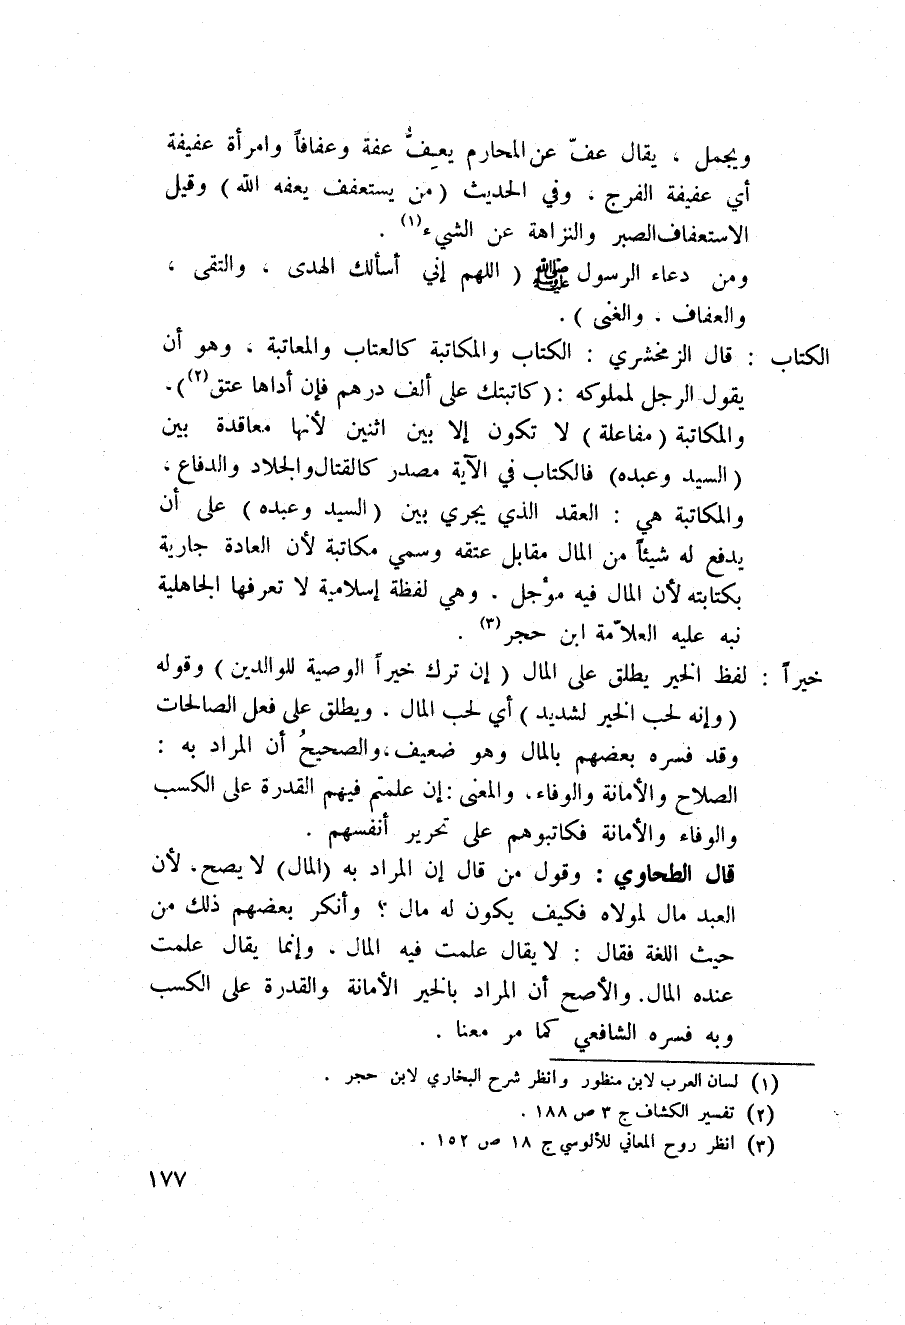 ويجمل ، يقال عفّ عن المحارم يعِفُّ عفة وعفافاً وامرأة عفيفة
أي عفيفة الفرج ، وفي الحديث ( من يستعفف يعفه الله ) وقيل
الاستعفاف الصبر والنزاهة عن الشيء (١) .
ومن دعاء الرسول ﷺ ( اللهم إني أسألك الهدى ، والتقى ،
والعفاف ، والغنى ) .
الكتاب : قال الزمخشري : الكتاب والمكاتبة كالعتاب والمعاتبة ، وهو أن
يقول الرجل لمملوكه : ( كاتبتك على ألف درهم فإن أداها عتق (٢) ) .
والمكاتبة ( مفاعلة ) لا تكون إلا بين اثنين لأنها معاقدة بين
( السيد وعبده ) فالكتاب في الآية مصدر كالقتال والجلاد والدفاع ،
والمكاتبة هي : العقد الذي يجري بين ( السيد وعبده ) على أن
يدفع له شيئاً من المال مقابل عتقه وسمي مكاتبة لأن العادة جارية
بكتابته لأن المال فيه مؤجل . وهي لفظة إسلامية لا تعرفها الجاهلية
نبه عليه العلاّمة ابن حجر (٣) .
خيراً : لفظ الخير يطلق على المال ( إن ترك خيراً الوصية للوالدين ) وقوله
( وإنه لحب الخير لشديد ) أي لحب المال . ويطلق على فعل الصالحات
وقد فسره بعضهم بالمال وهو ضعيف، والصحيحُ أن المراد به :
الصلاح والأمانة والوفاء . والمعنى : إن علمتم فيهم القدرة على الكسب
والوفاء والأمانة فكاتبوهم على تحرير أنفسهم .
قال الطحاوي : وقول من قال إن المراد به (المال) لا يصح ، لأن
العبد مال لمولاه فكيف يكون له مال ؟ وأنكر بعضهم ذلك من
حيث اللغة فقال : لا يقال علمت فيه المال . وإنما يقال علمت
عنده المال . والأصح أن المراد بالخير الأمانة والقدرة على الكسب
وبه فسره الشافعي كما مر معنا .
(١) لسان العرب لابن منظور وانظر شرح البخاري لابن حجر .
(٢) تفسير الكشاف ج ٣ ص ١٨٨ .
(٣) انظر روح المعاني للألوسي ج ١٨ ص ١٥٢ .
١٧٧